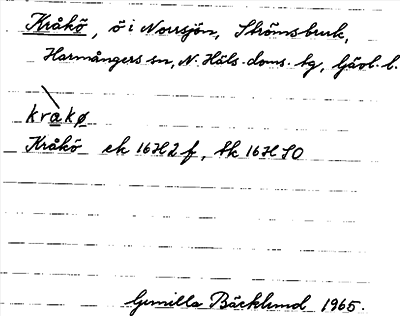 Kråkö, ö i Norrsjön, Strömsbruk,
Harmångers sn, N. Häls. doms. hg, Gävl. l.
krakø
Kråkö ek 16H2f, tk 16H SO
Gunilla Bäcklund 1965.